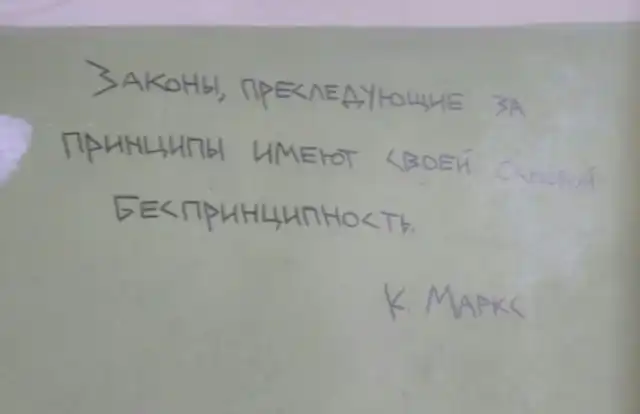 Законы, преследующие за
принципы имеют своей
Беспринципность.
К. Маркс